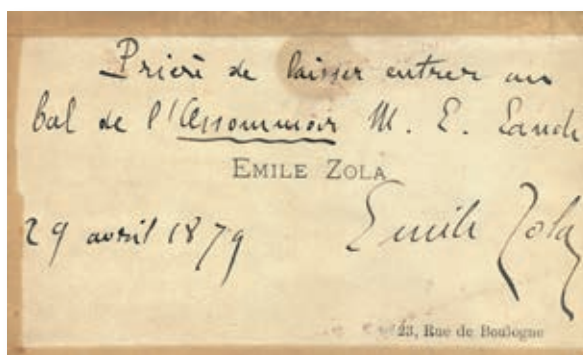 Prière de laisser entrer au
bal de l'Assommoir M. E.
EMILE ZOLA
29 avril 1879 Emile Zola
23, Rue de Boulogne